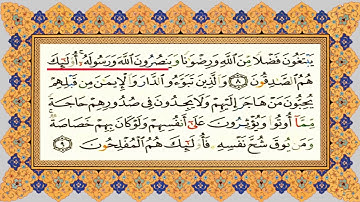 يَبْتَغُونَ فَضْلًا مِّنَ اللَّهِ وَرِضْوَٰنًا وَيَنصُرُونَ اللَّهَ وَرَسُولَهُۥٓ أُو۟لَٰٓئِكَ
هُمُ الصَّٰدِقُونَ ٨ وَالَّذِينَ تَبَوَّءُو الدَّارَ وَالْإِيمَٰنَ مِن قَبْلِهِمْ
يُحِبُّونَ مَنْ هَاجَرَ إِلَيْهِمْ وَلَا يَجِدُونَ فِى صُدُورِهِمْ حَاجَةً
مِّمَّآ أُوتُوا۟ وَيُؤْثِرُونَ عَلَىٰٓ أَنفُسِهِمْ وَلَوْ كَانَ بِهِمْ خَصَاصَةٌ
وَمَن يُوقَ شُحَّ نَفْسِهِۦ فَأُو۟لَٰٓئِكَ هُمُ الْمُفْلِحُونَ ٩